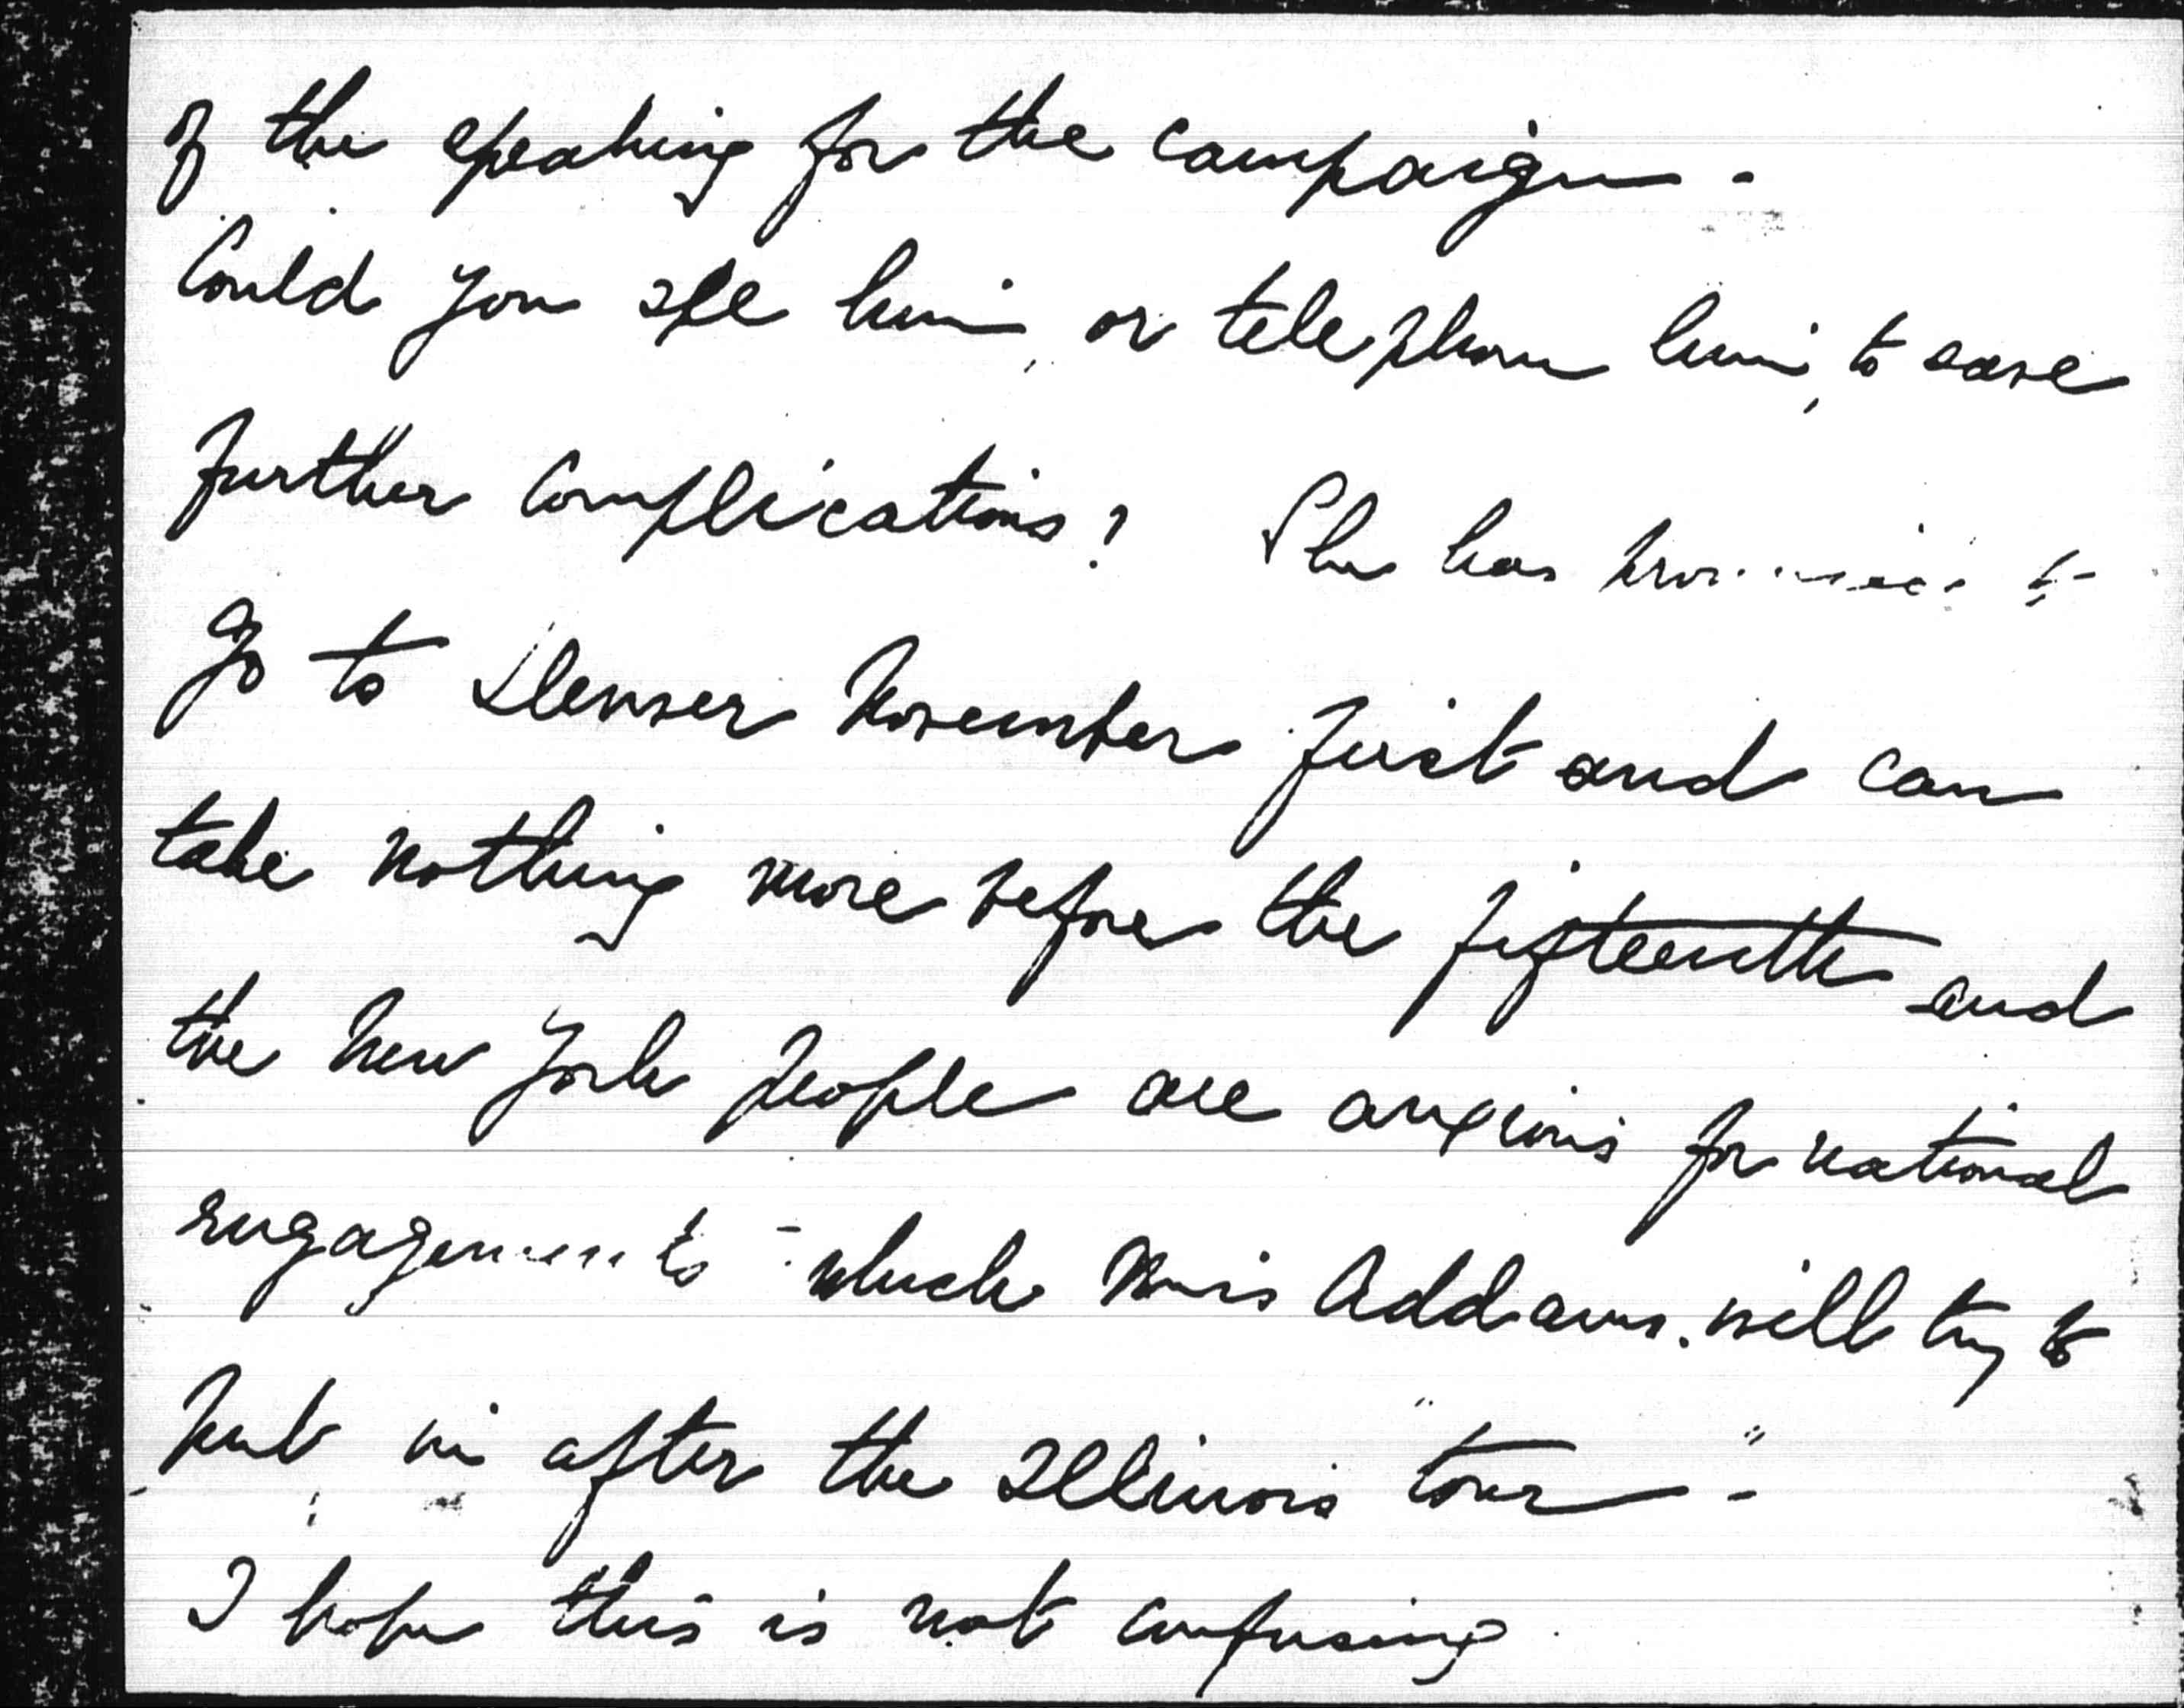 of the speaking for the campaign -
Could you see him, or telephone him, to save
further complications? She has promised to
go to Denver November first and can
take nothing more before the fifteenth and
the New York people are anxious for national
engagements - which Miss Addams. will try to
put in after the Illinois "tour" -
I hope this is not confusing